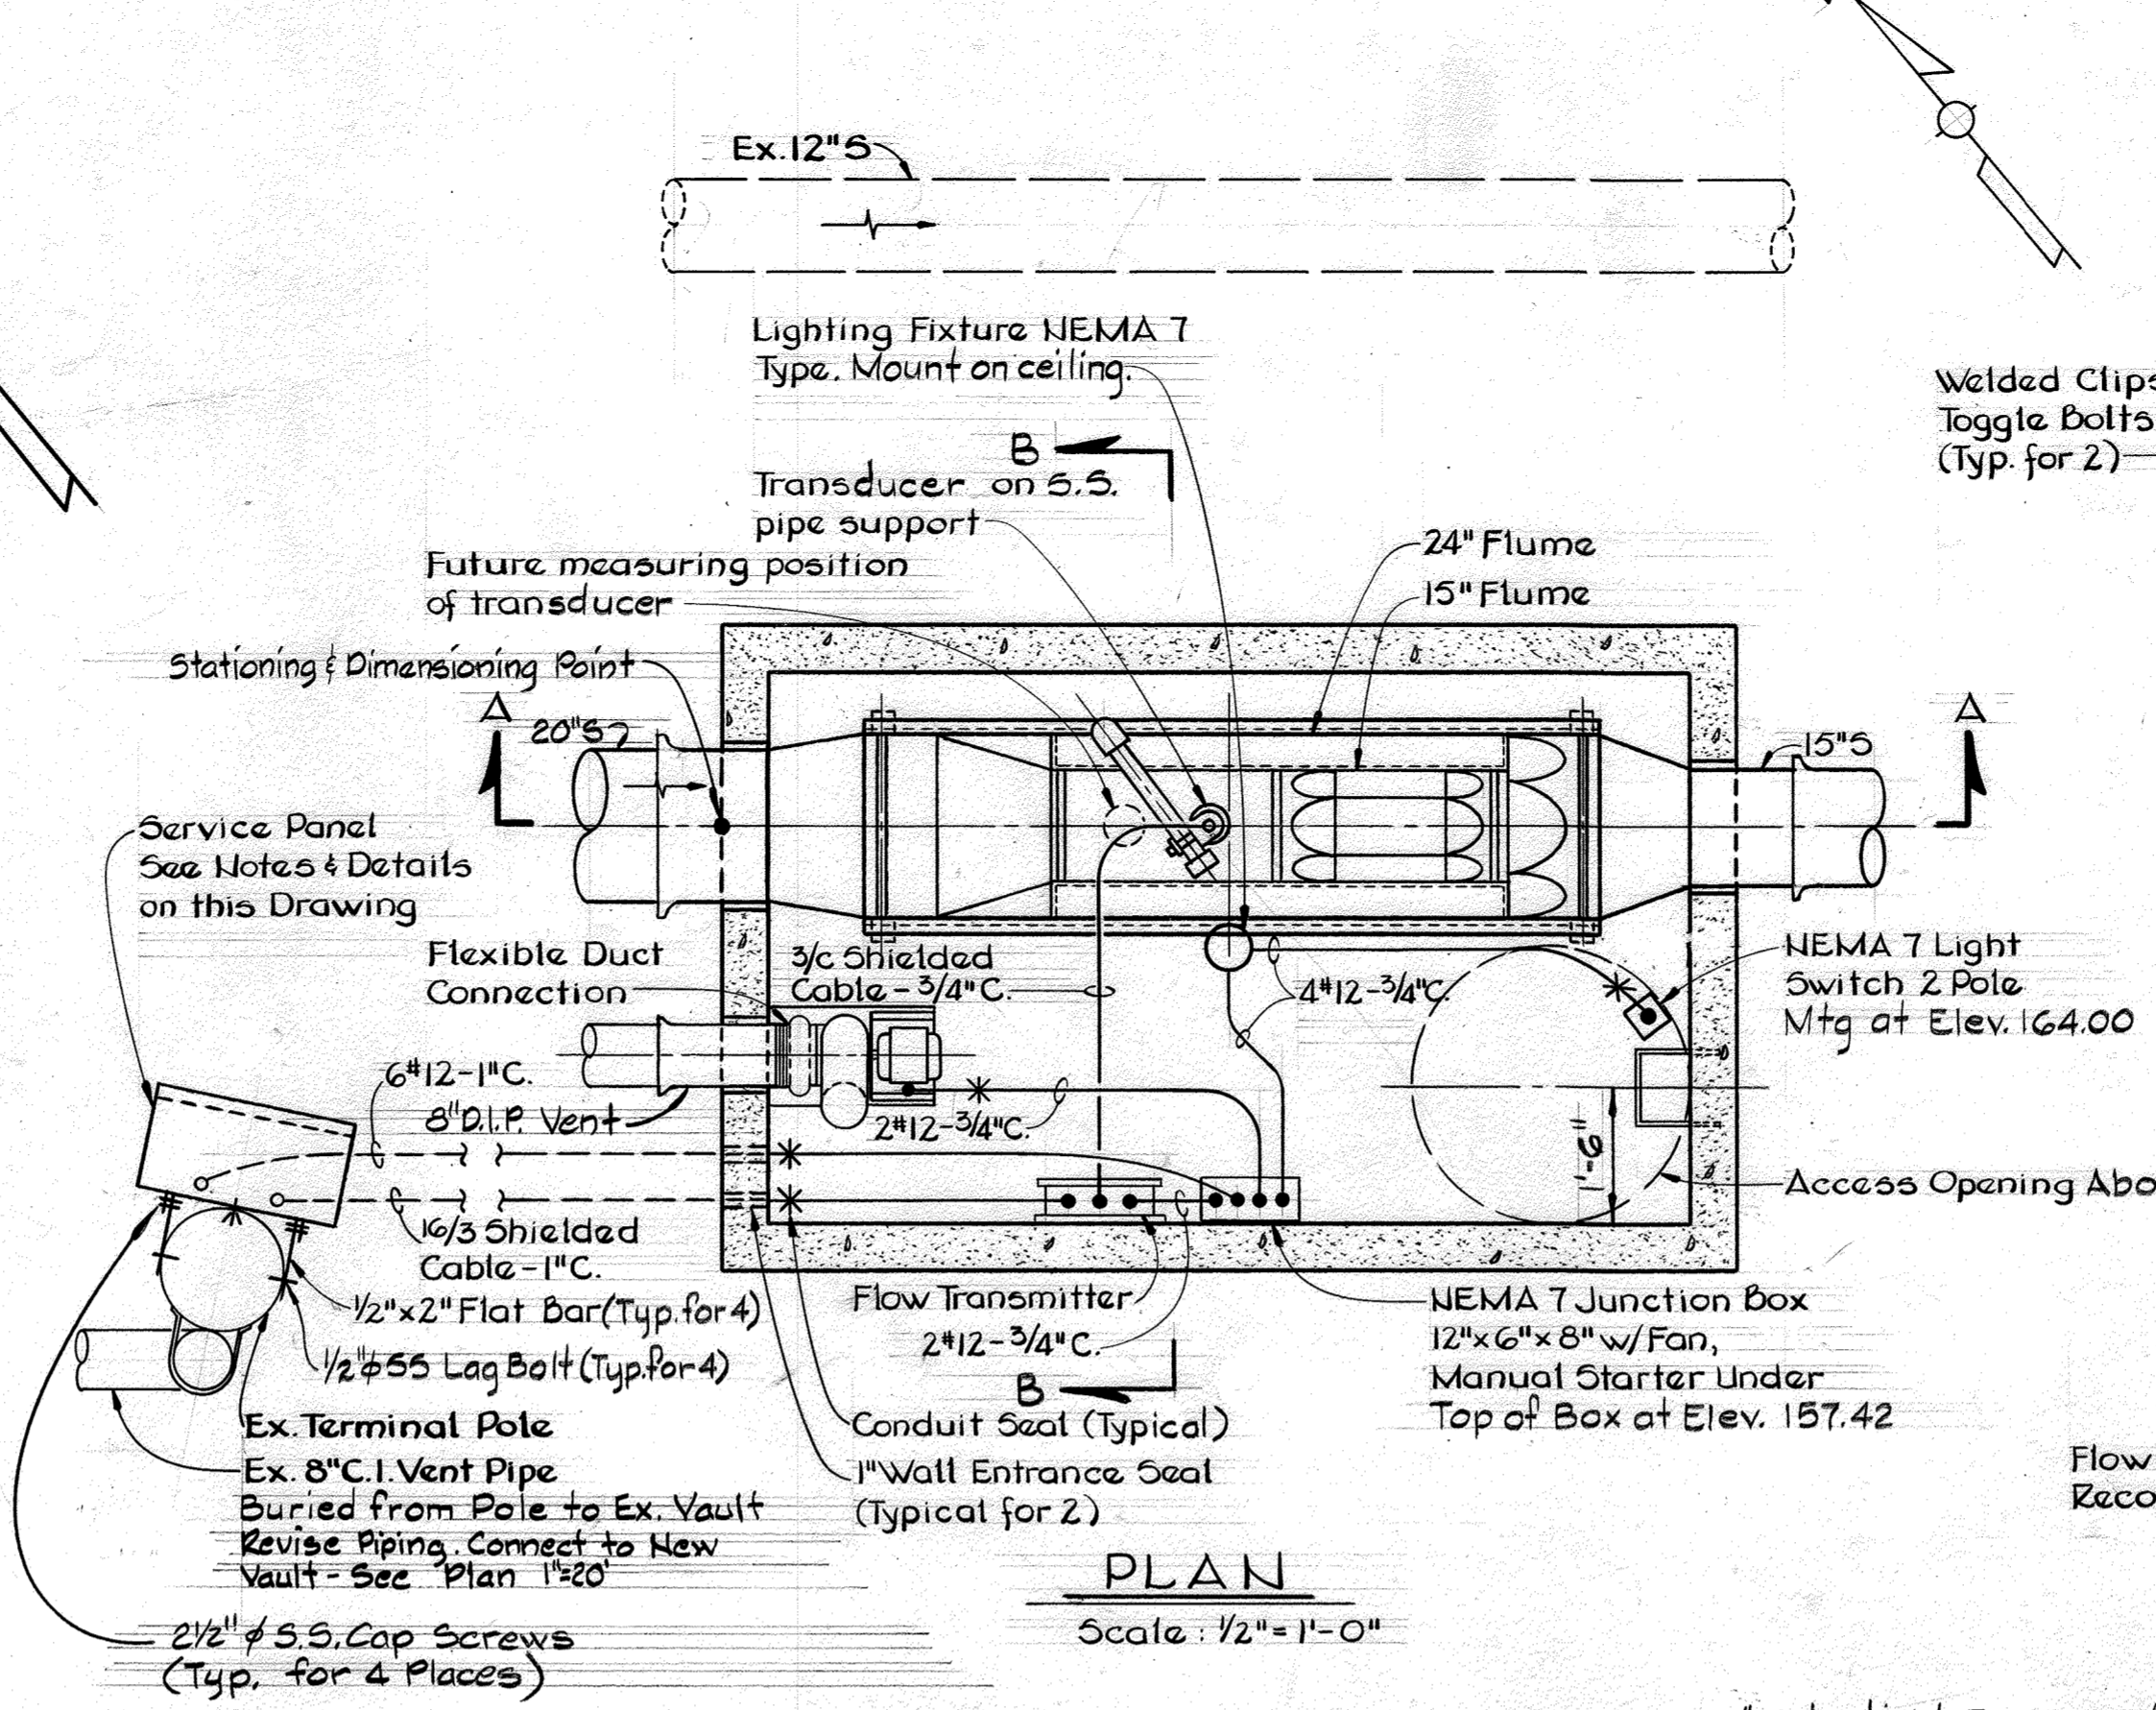 Ex. 12"S
Lighting Fixture NEMA 7
Type. Mount on ceiling.
B
Transducer on S.S.
pipe support
Future measuring position
of transducer
Stationing & Dimensioning Point
24" Flume
15" Flume
Welded Clips
Toggle Bolts
(Typ. for 2)
A
20"S
A
15"S
Service Panel
See Notes & Details
on this Drawing
Flexible Duct
Connection
3/c Shielded
Cable - 3/4"C.
4#12-3/4"C.
NEMA 7 Light
Switch 2 Pole
Mtg at Elev. 164.00
6#12-1"C.
8"D.I.P. Vent
2#12-3/4"C.
1'-9"
Access Opening Abo
16/3 Shielded
Cable-1"C.
1/2"x2" Flat Bar (Typ. for 4)
1/2"ϕ SS Lag Bolt (Typ. for 4)
Flow Transmitter
2#12-3/4"C.
B
NEMA 7 Junction Box
12"x6"x8" w/Fan,
Manual Starter Under
Top of Box at Elev. 157.42
Ex. Terminal Pole
Ex. 8"C.I. Vent Pipe
Buried from Pole to Ex. Vault
Revise Piping. Connect to New
Vault - See Plan 1"=20'
Conduit Seal (Typical)
1" Wall Entrance Seal
(Typical for 2)
2 1/2" ϕ S.S. Cap Screws
(Typ. for 4 Places)
Flow
Reco
PLAN
Scale: 1/2" = 1'-0"